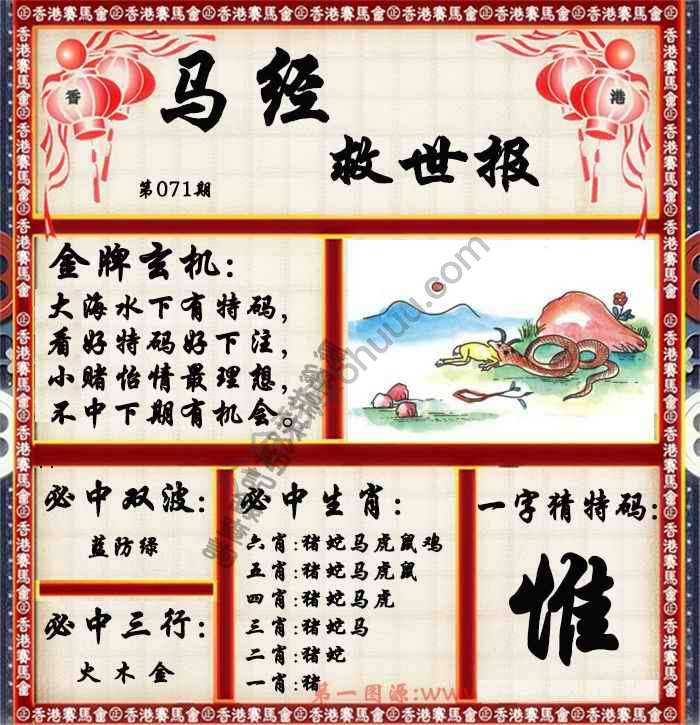 香港賽馬會
香 港
马经
救世报
第071期
金牌玄机:
大海水下有特码,
看好特码好下注,
小赌怡情最理想,
不中下期有机会。
必中双波:
蓝防绿
必中三行:
火木金
必中生肖:
六肖:猪蛇马虎鼠鸡
五肖:猪蛇马虎鼠
四肖:猪蛇马虎
三肖:猪蛇马
二肖:猪蛇
一肖:猪
一字猜特码:
惟
第一图源:www